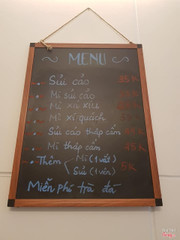 MENU
Sủi cảo
Mì sủi cảo
Mì xá xíu
Mì xí quách
Sủi cảo thập cẩm
Mì thập cẩm 45K
Thêm Mì (1 vắt)
Sủi (1 viên)
Miễn phí trà đá